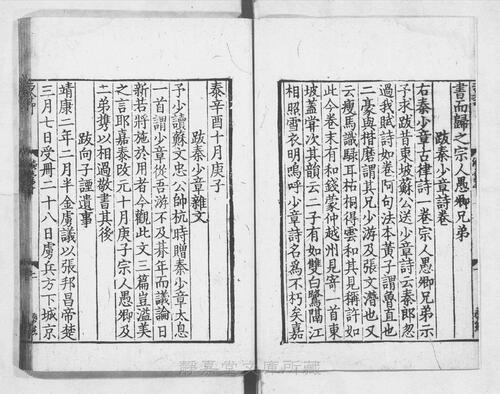 書而歸之宗人愚卿兄弟
跋秦少章詩卷
右秦少章古律詩一卷宗人愚卿兄弟示
予求跋昔東坡蘇公送少章詩云秦郎忽
過我賦詩如卷阿句法本黃子謂魯直也
二豪與揩磨謂其兄少游及張文潛也又
云瘦馬識騄耳枯桐得雲和其見稱許如
此今卷末有和錢蒙仲越州見寄一首東
坡蓋嘗次其韻云二子有如雙白鷺隔江
相照雪衣明嗚呼少章詩名為不朽矣嘉
泰辛酉十月庚子
跋秦少章雜文
予少讀蘇文忠公帥杭時贈秦少章太息
一首謂少章從吾游不及朞年而議論日
新若將施於用者今觀此文三篇豈溢美
之言耶嘉泰改元十月庚子宗人愚卿及
二弟攜以相過敬書其後
跋向子諲遺事
靖康二年二月半金虜議以張邦昌帝楚
三月七日受冊二十八日虜兵方下城京
靜嘉堂文庫所藏